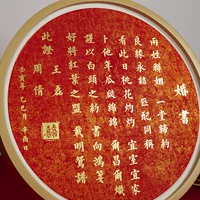 婚書
兩姓聯姻 一堂締約
良緣永結 匹配同稱
看此日桃花灼灼 宜室宜家
卜他年瓜瓞綿綿 爾昌爾熾
謹以白頭之約 書向鴻箋
好將紅葉之盟 載明鴛譜
此證
王磊
周倩
壬寅年 乙巳月 辛酉日